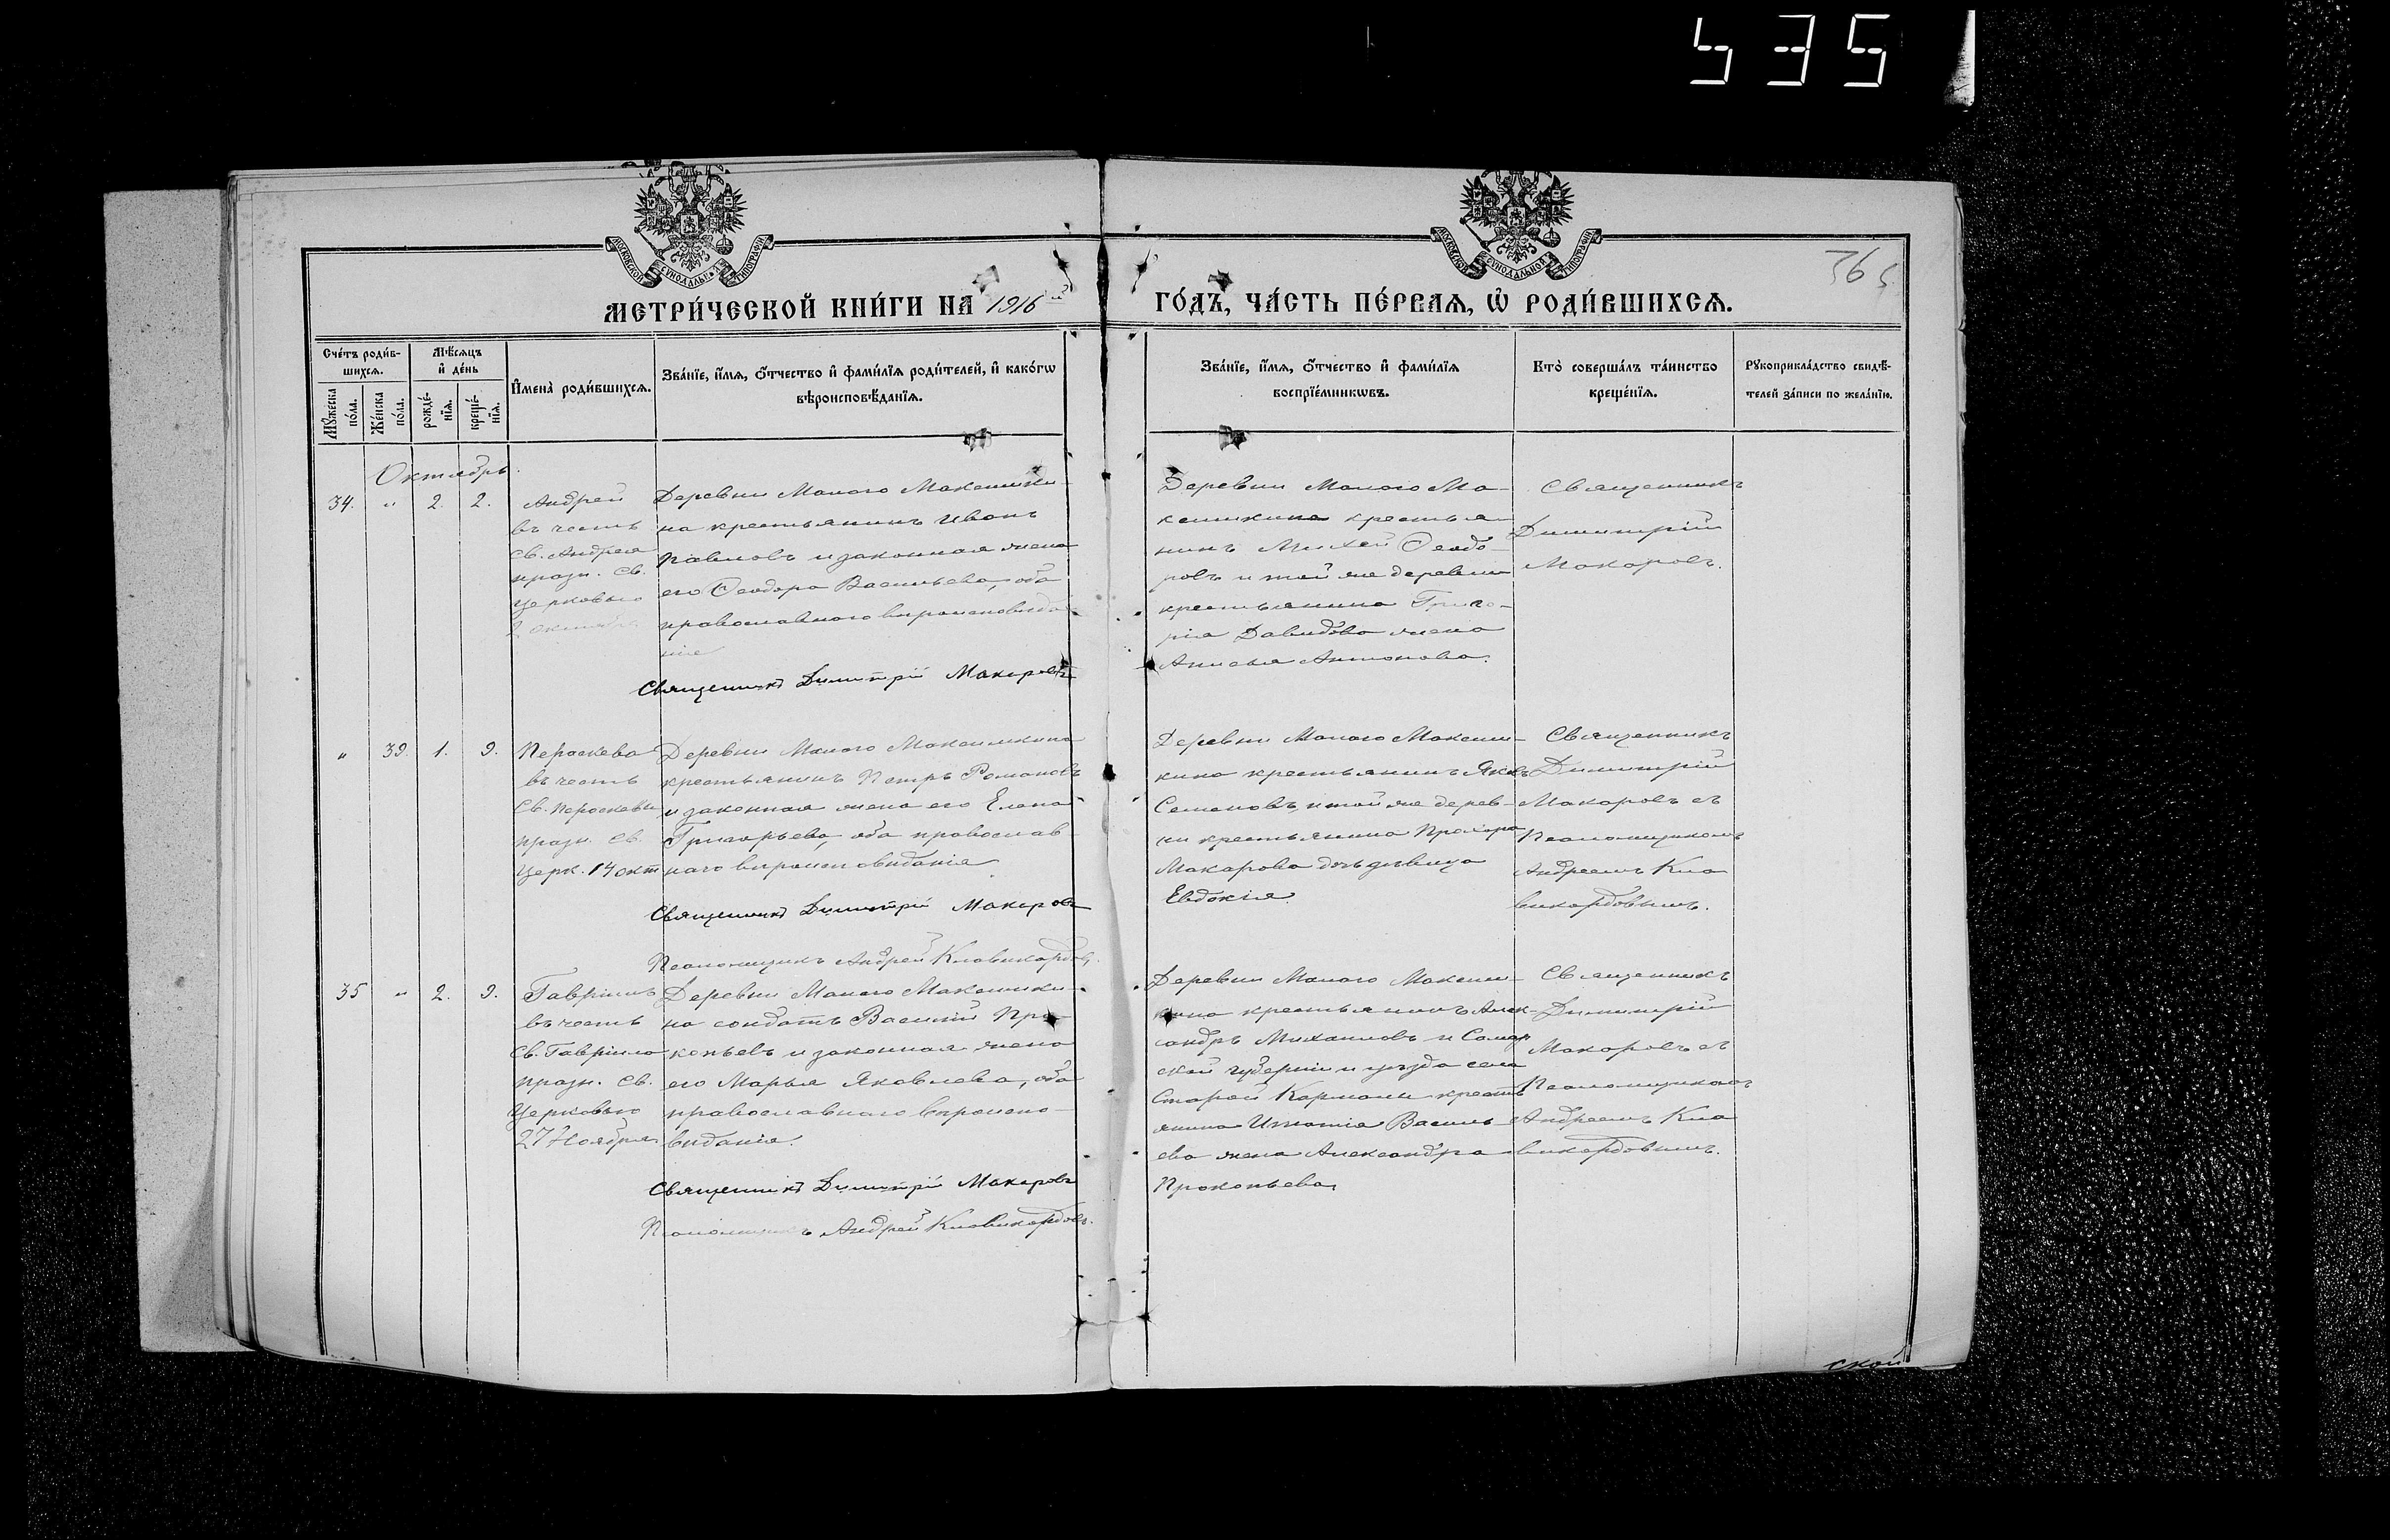 535
365
МОСКОВСКОЙ СУНОДАЛЬНОЙ ТИПОГРАФИИ
МОСКОВСКОЙ СУНОДАЛЬНОЙ ТИПОГРАФИИ
МЕТРИ́ЧЕСКОЙ КНИ́ГИ НА 1916й ГО́ДЪ, ЧА́СТЬ ПЕ́РВАЯ, Ѡ РОДИ́ВШИХСЯ.
Сче́тъ роди́в-
шихся.
Мѣ́сяцъ
и де́нь
Мꙋ́жеска
по́ла.
Же́нска
по́ла.
рожде́-
нїя.
креще́-
нїя.
И́мена̀ роди́вшихся.
Зва́нїе, и́мя, ѻ́тчество и фами́лїя роди́телей, и како́гѡ
вѣроисповѣ́данїя.
Зва́нїе, и́мя, ѻ́тчество и фами́лїя
воспрїе́мникѡвъ.
Кто̀ соверша́лъ та́инство
креще́нїя.
Рꙋкоприкла́дство свидѣ́-
телей за́писи по жела́нїю.
Октябрь.
34. " 2. 2.
Андрей
въ честь
Св. Андрея
празн. Св.
Церковью
2 октября
Деревни Малого Максимки-
на крестьянинъ Иванъ
Павловъ и законная жена
его Ѳеодора Васильева, оба
православного вѣроисповѣда-
нія
Священникъ Димитрій Макаровъ
Деревни Малого Ма-
ксимкина крестья-
нинъ Михей Ѳеодо-
ровъ и той же деревни
крестьянина Григо-
рія Давидова жена
Анисья Антонова.
Священникъ
Димитрій
Макаровъ.
" 39. 1. 9.
Параскева
въ честь
Св. Параскевы
празн. Св.
Церк. 14 окт
Деревни Малого Максимкина
крестьянинъ Петръ Романовъ
и законная жена его Елена
Григорьева, оба православ
наго вѣроисповѣданія
Священникъ Димитрій Макаровъ
Псаломщикъ Андрей Клавикордовъ.
Деревни Малого Максим-
кина крестьянинъ Яковъ
Семеновъ, и той же дерев-
ни крестьянина Прохора
Макарова дочь девица
Евдокія
Священникъ
Димитрій
Макаровъ съ
Псаломщикомъ
Андреемъ Кла
викордовымъ.
35 " 2. 9.
Гавріилъ
въ честь
Св. Гавріила
празн. Св.
Церковью
27 Ноября
Деревни Малого Максимки-
на солдатъ Василій Про-
копьевъ и законная жена
его Марья Яковлева, оба
православнаго вѣроиспо-
вѣданія.
Священникъ Димитрій Макаровъ
Псаломщикъ Андрей Клавикордовъ.
Деревни Малого Максим-
кина крестьянинъ Алек-
сандръ Михаиловъ и Самар
ской губерніи и уѣзда села
Старой Кармалы кресть
янина Игнатія Василь
ева жена Александра
Прокопьева
Священникъ
Димитрій
Макаровъ съ
Псаломщикомъ
Андреемъ Кла
викордовымъ.
ской